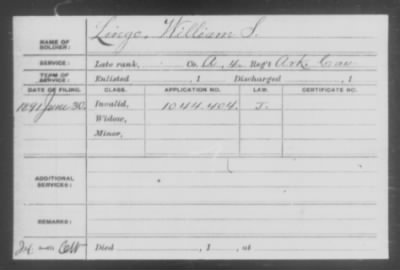 NAME OF SOLDIER: Lingo, William S.
SERVICE: Late rank, Co. A, 4 Reg't Ark. Cav
TERM OF SERVICE: Enlisted , 1 Discharged , 1
DATE OF FILING. CLASS. APPLICATION NO. LAW. CERTIFICATE NO.
1891 June 30. Invalid, 1044.404 J.
Widow,
Minor,
ADDITIONAL SERVICES:
REMARKS:
Died , 1 , at